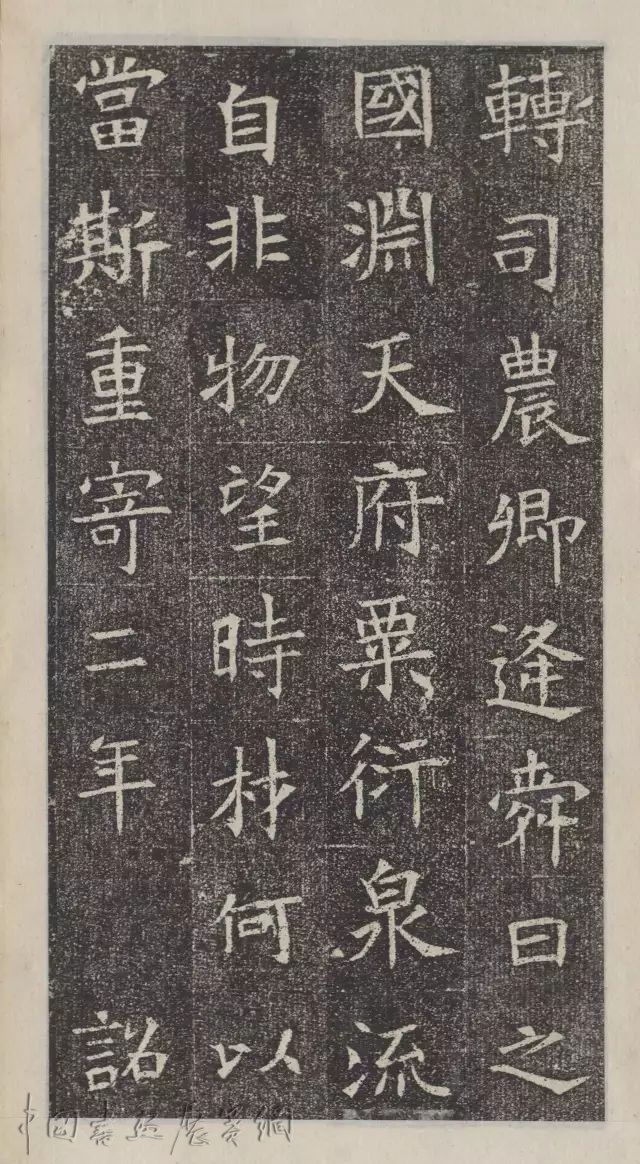 轉司農卿逄舜日之
國淵天府粟衍泉流
自非物望時材何以
當斯重寄二年 詔
中国书法展赏网